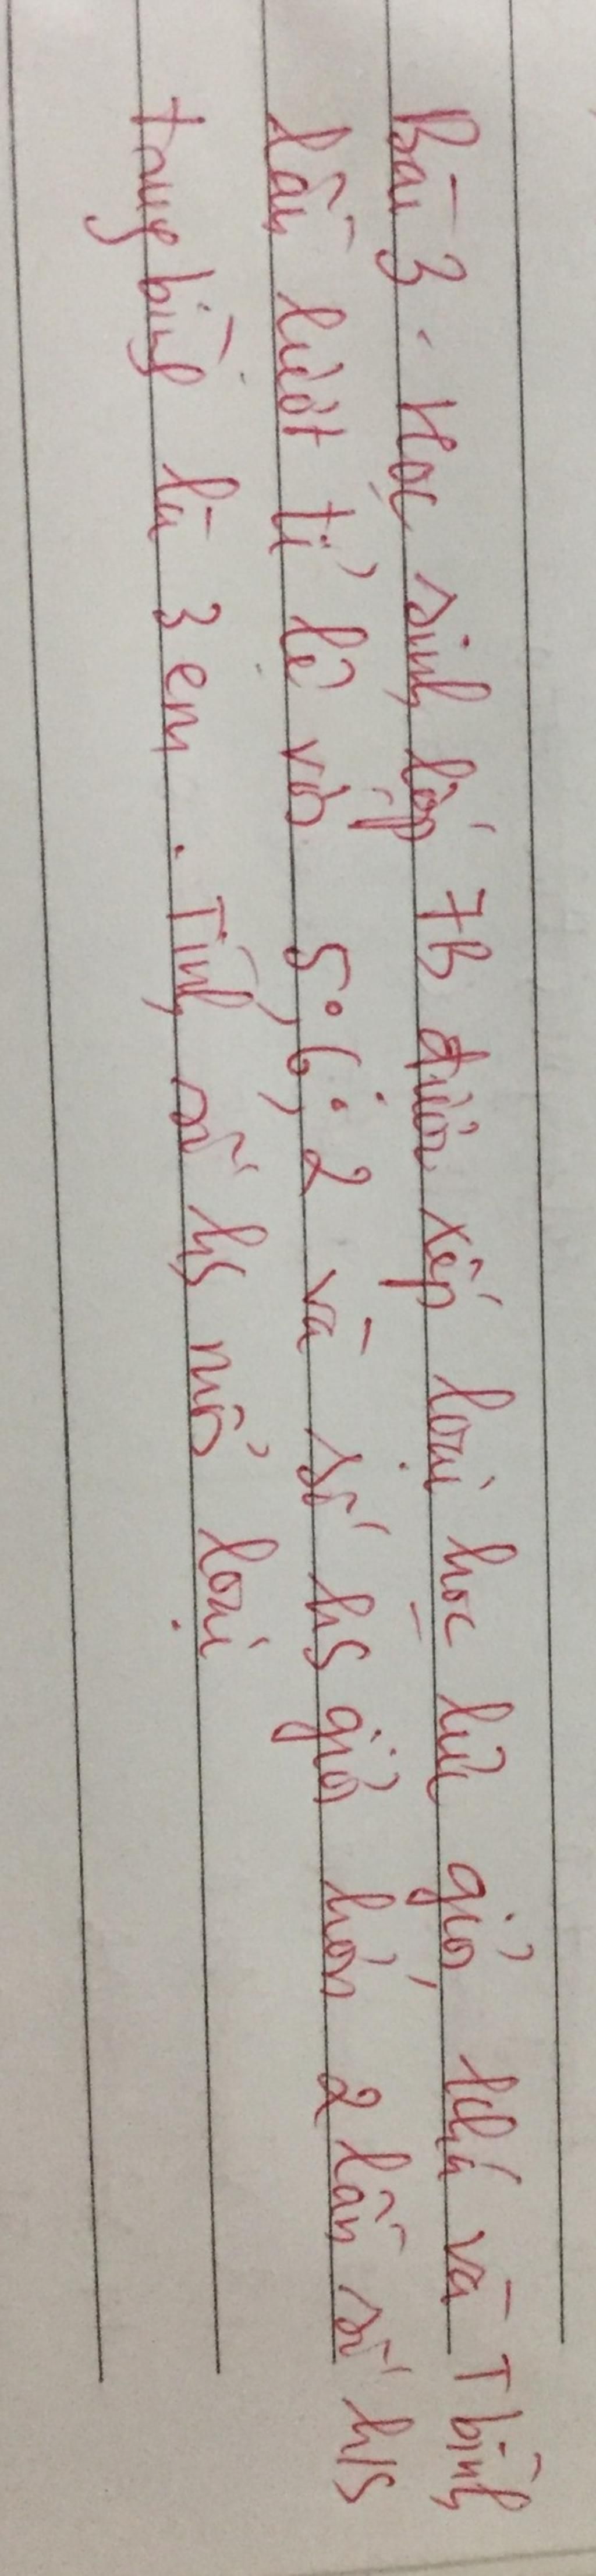 Bài 3. Học sinh lớp 7B được xếp loại học lực giỏi, khá và T bình
lần lượt tỉ lệ với 5; 6; 2 và số hs giỏi hơn 2 lần số h/s
trung bình là 3 em. Tính số hs mỗi loại